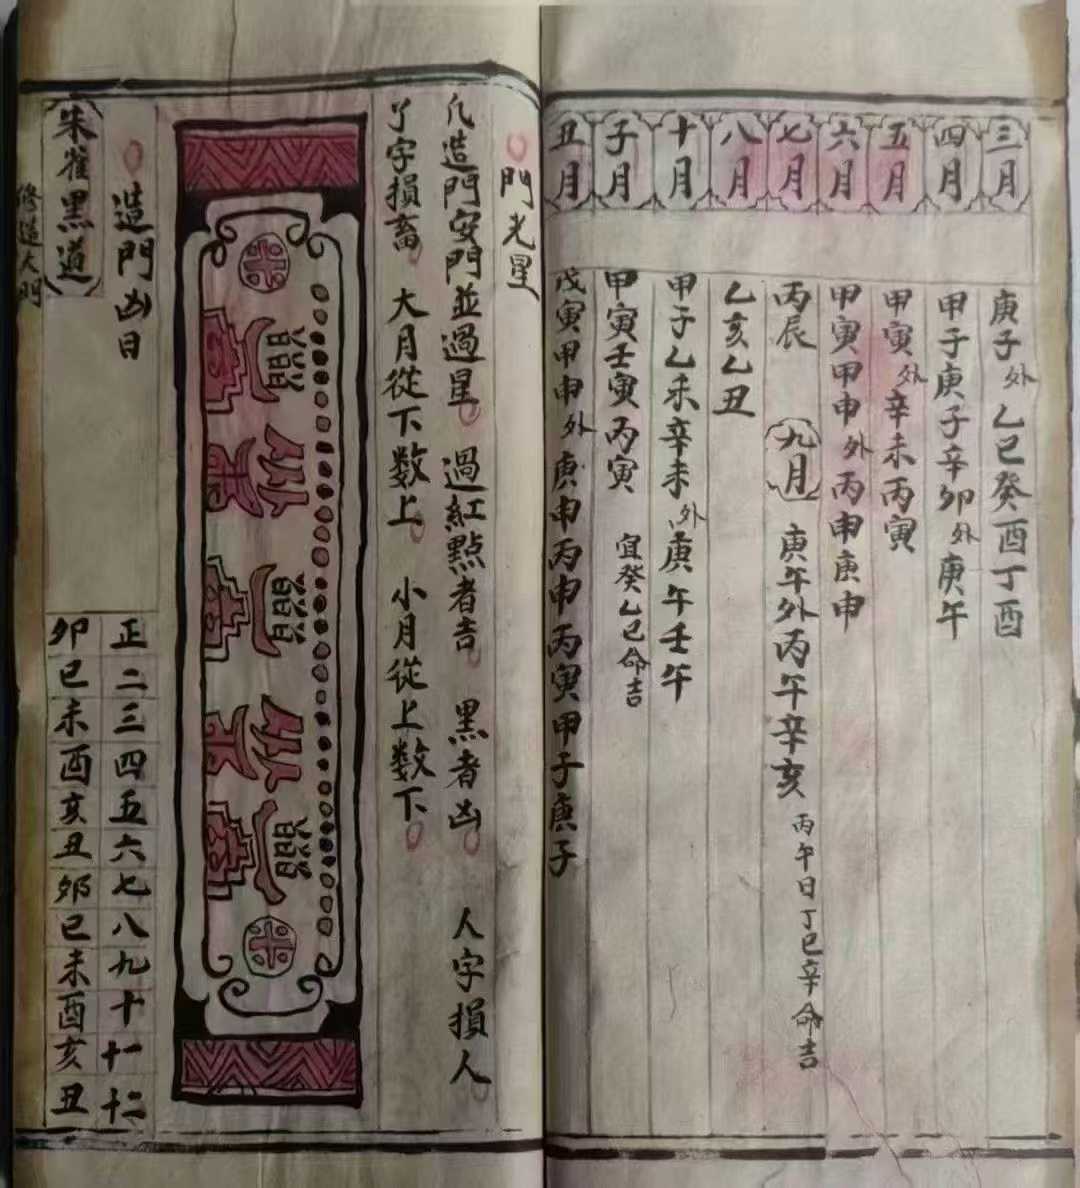 三月
庚子外乙巳癸酉丁酉
四月
甲子庚子辛卯外庚午
五月
甲寅外辛未丙寅
六月
甲寅甲申外丙申庚申
七月
丙辰
九月
庚午外丙午辛亥
丙午日丁巳辛命吉
八月
乙亥乙丑
十月
甲子乙未辛未外庚午壬午
子月
甲寅壬寅丙寅
宜癸乙巳命吉
丑月
戊寅甲申外庚申丙申丙寅甲子庚子
門光星
凡造門安門並過星 過紅點者吉 黑者凶 人字損人
丫字損畜 大月從下数上 小月從上数下
造門凶日
正二三四五六七八九十十一十二
朱雀黑道
卯巳未酉亥丑卯巳未酉亥丑
修造大門